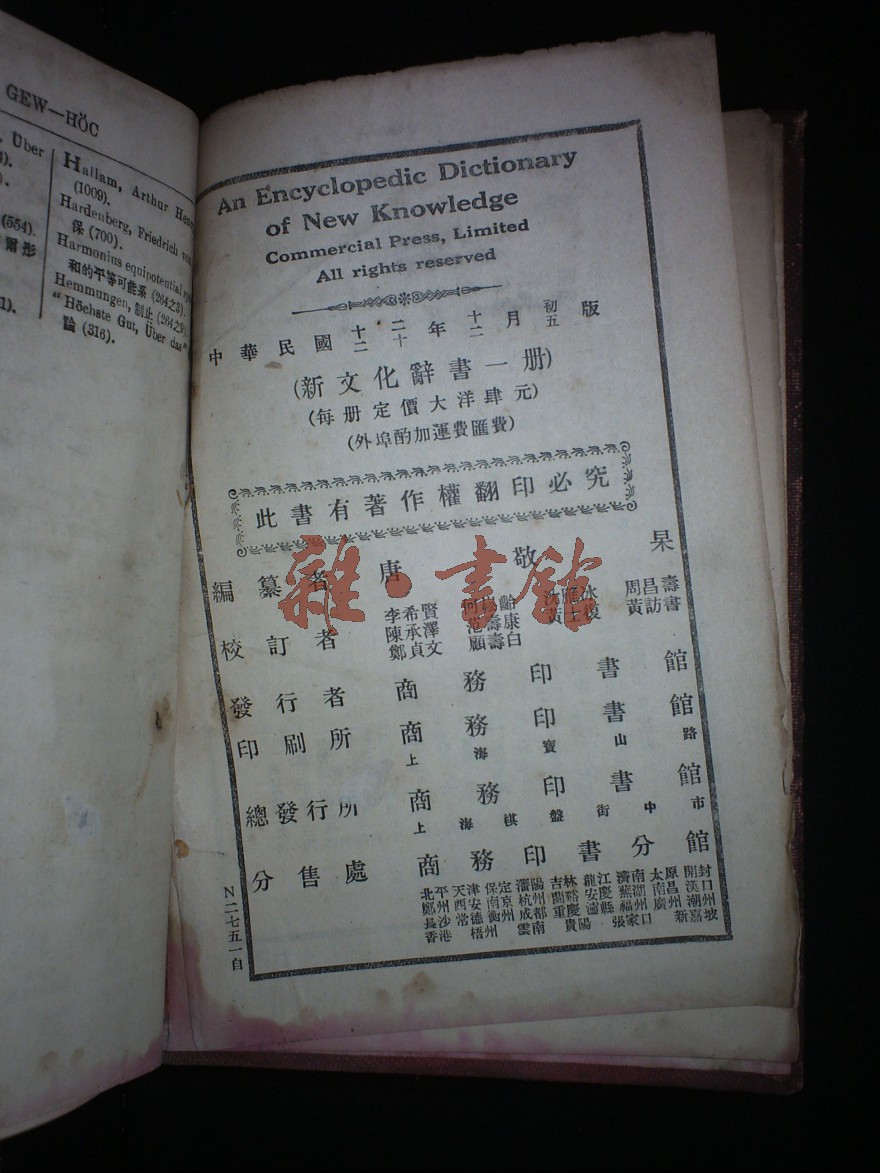 GEW—HÖC
Über
(554).
爾彤
Hallam, Arthur
(1009).
Hardenberg, Friedrich von
保 (700).
Harmonius equipotential
和的平等可能系 (264之3).
Hemmungen, 制止 (264之9).
"Höchste Gut, Über das"
論 (316).
An Encyclopedic Dictionary
of New Knowledge
Commercial Press, Limited
All rights reserved
中華民國十二年十月初版
二十二年十二月五版
(新文化辭書一册)
(每册定價大洋肆元)
(外埠酌加運費匯費)
此書有著作權翻印必究
編纂者 唐敬杲
校訂者 李希賢 周昌壽
陳承澤 范壽康 黃士復 黃訪書
鄭貞文 顧壽白
發行者 商務印書館
印刷所 商務印書館
上海寶山路
總發行所 商務印書館
上海棋盤街中市
分售處 商務印書分館
北平天津保定瀋陽吉林龍江濟南太原開封
鄭州西安南京杭州蘭谿安慶蕪湖南昌漢口
長沙常德衡州成都重慶瀘縣福州廣州潮州
香港梧州雲南貴陽張家口新嘉坡
N二七五一自
雜·書館